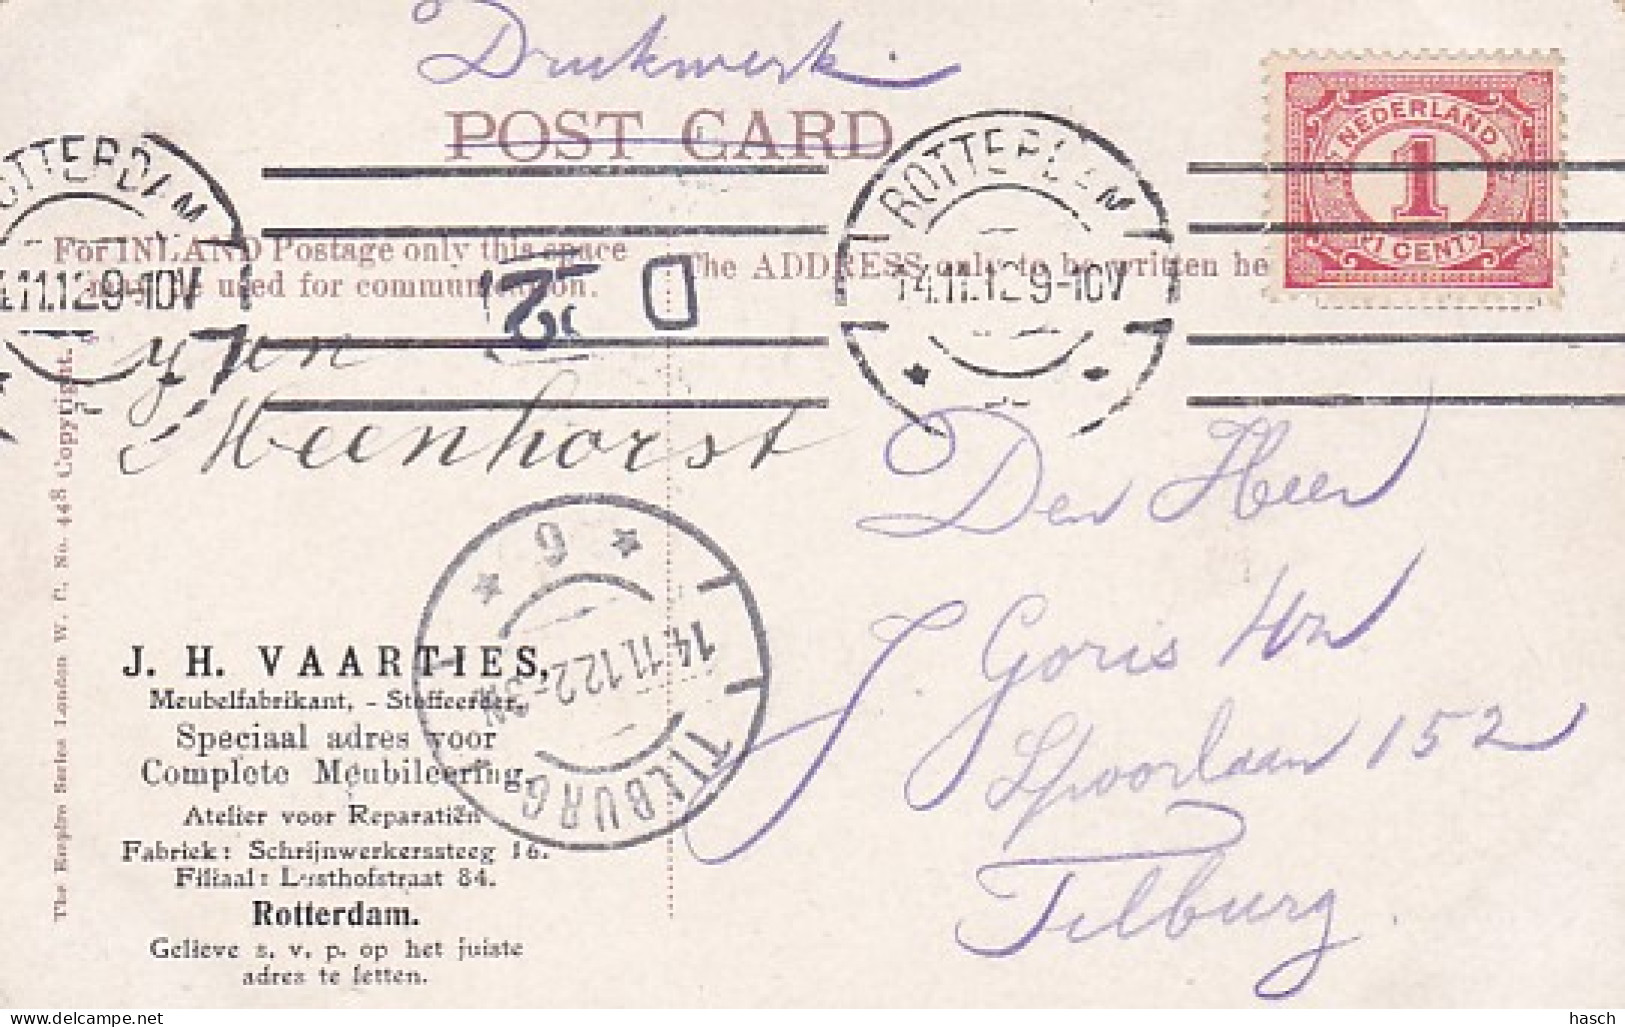 Drukwerk.
POST CARD
NEDERLAND
1
1 CENT
ROTTERDAM
14.11.12 9-10V
ROTTERDAM
14.11.12 9-10V
For INLAND Postage only this space
must be used for communication.
The ADDRESS only to be written he
D
Meenhorst
Den Heer
J. Goris Hzn
Spoorlaan 152
Tilburg.
TILBURG
14.11.12 2-3N
G
J. H. VAARTJES,
Meubelfabrikant, - Stoffeerder,
Speciaal adres voor
Complete Meubileering,
Atelier voor Reparatiën
Fabriek: Schrijnwerkerssteeg 16.
Filiaal: Lusthofstraat 84.
Rotterdam.
Gelieve s. v. p. op het juiste
adres te letten.
The Empire Series London W. C. No. 448 Copyright.
hasch